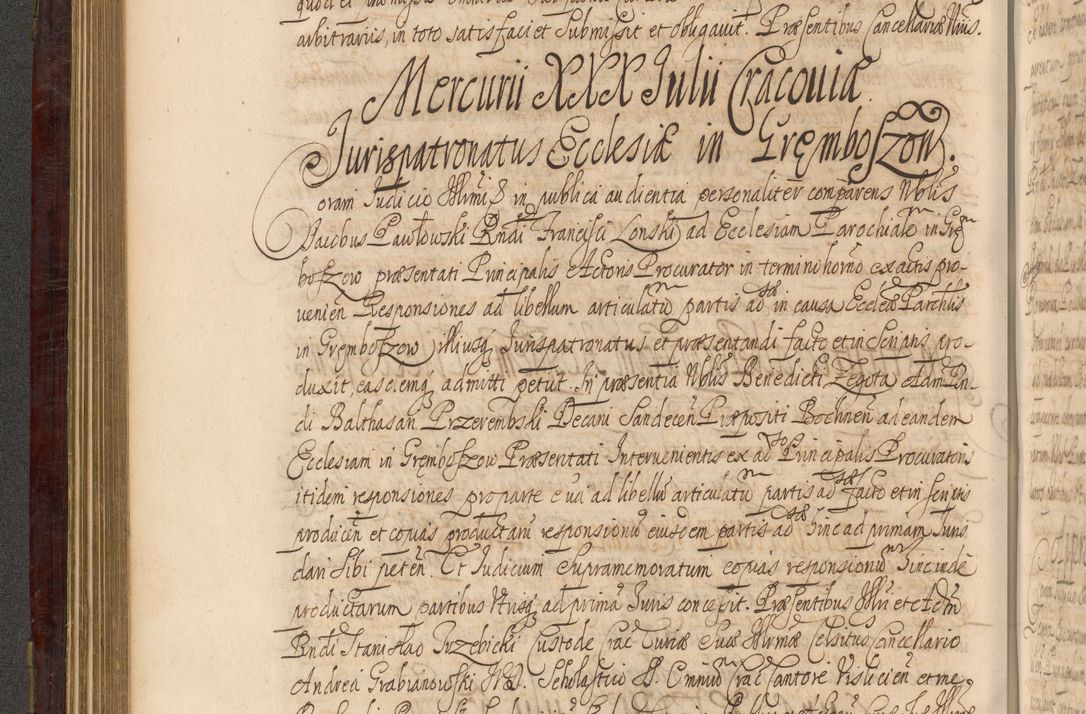 arbitrariis, in toto satisfaciet submisit et obligavit. Præsentibus Cancellariæ Nrĩis.
Mercurii XXX Iulii Cracoviæ.
Jurispatronatus Ecclesiæ in Gręboszow.
Coram Judicio Illrmi S in publica audientia personaliter comparens Nblis
Jacobus Pawłowski Rndi Francisci Lonski ad Ecclesiam Parochialẽ in Gręm
boszow præsentati Principalis Actoris Procurator in termino horño ex actis pro-
venieñ Responsiones ad libellum articulatũ partis adsæ in causa Ecclæ Parchlis
in Gręmboszow illiusq Jurispatronatus et præsentandi facto et in scriptis pro-
duxit, easq, emq, admitti petiit. In præsentia Nblis Benedicti Zegota Adm Rn-
di Balthasari Przerembski Decani Sandeceñ Præpositi Bochneñ ad eandem
Ecclesiam in Gręmboszow Præsentati Intervenientis ex adso Principalis Procuratoris
itidem responsiones pro parte sua ad libellũ articulatũ partis adsæ facto et in scriptis
producẽn et copias productarũ responsionũ eiusdem partis adsæ hinc ad primam Juris
dari sibi peteñ. Et Judicium supramemoratum copias responsionũ hinc inde
productarum partibus utrisq ad primã Juris concessit. Præsentibus Illri et Adm
Rndi Stanislao Trzebicki Custode Crac Curiæ Suæ Illrmæ Celsitũs Cancellario
Andrea Grabianowski Scholastico S. Cantore Visliceñ et me